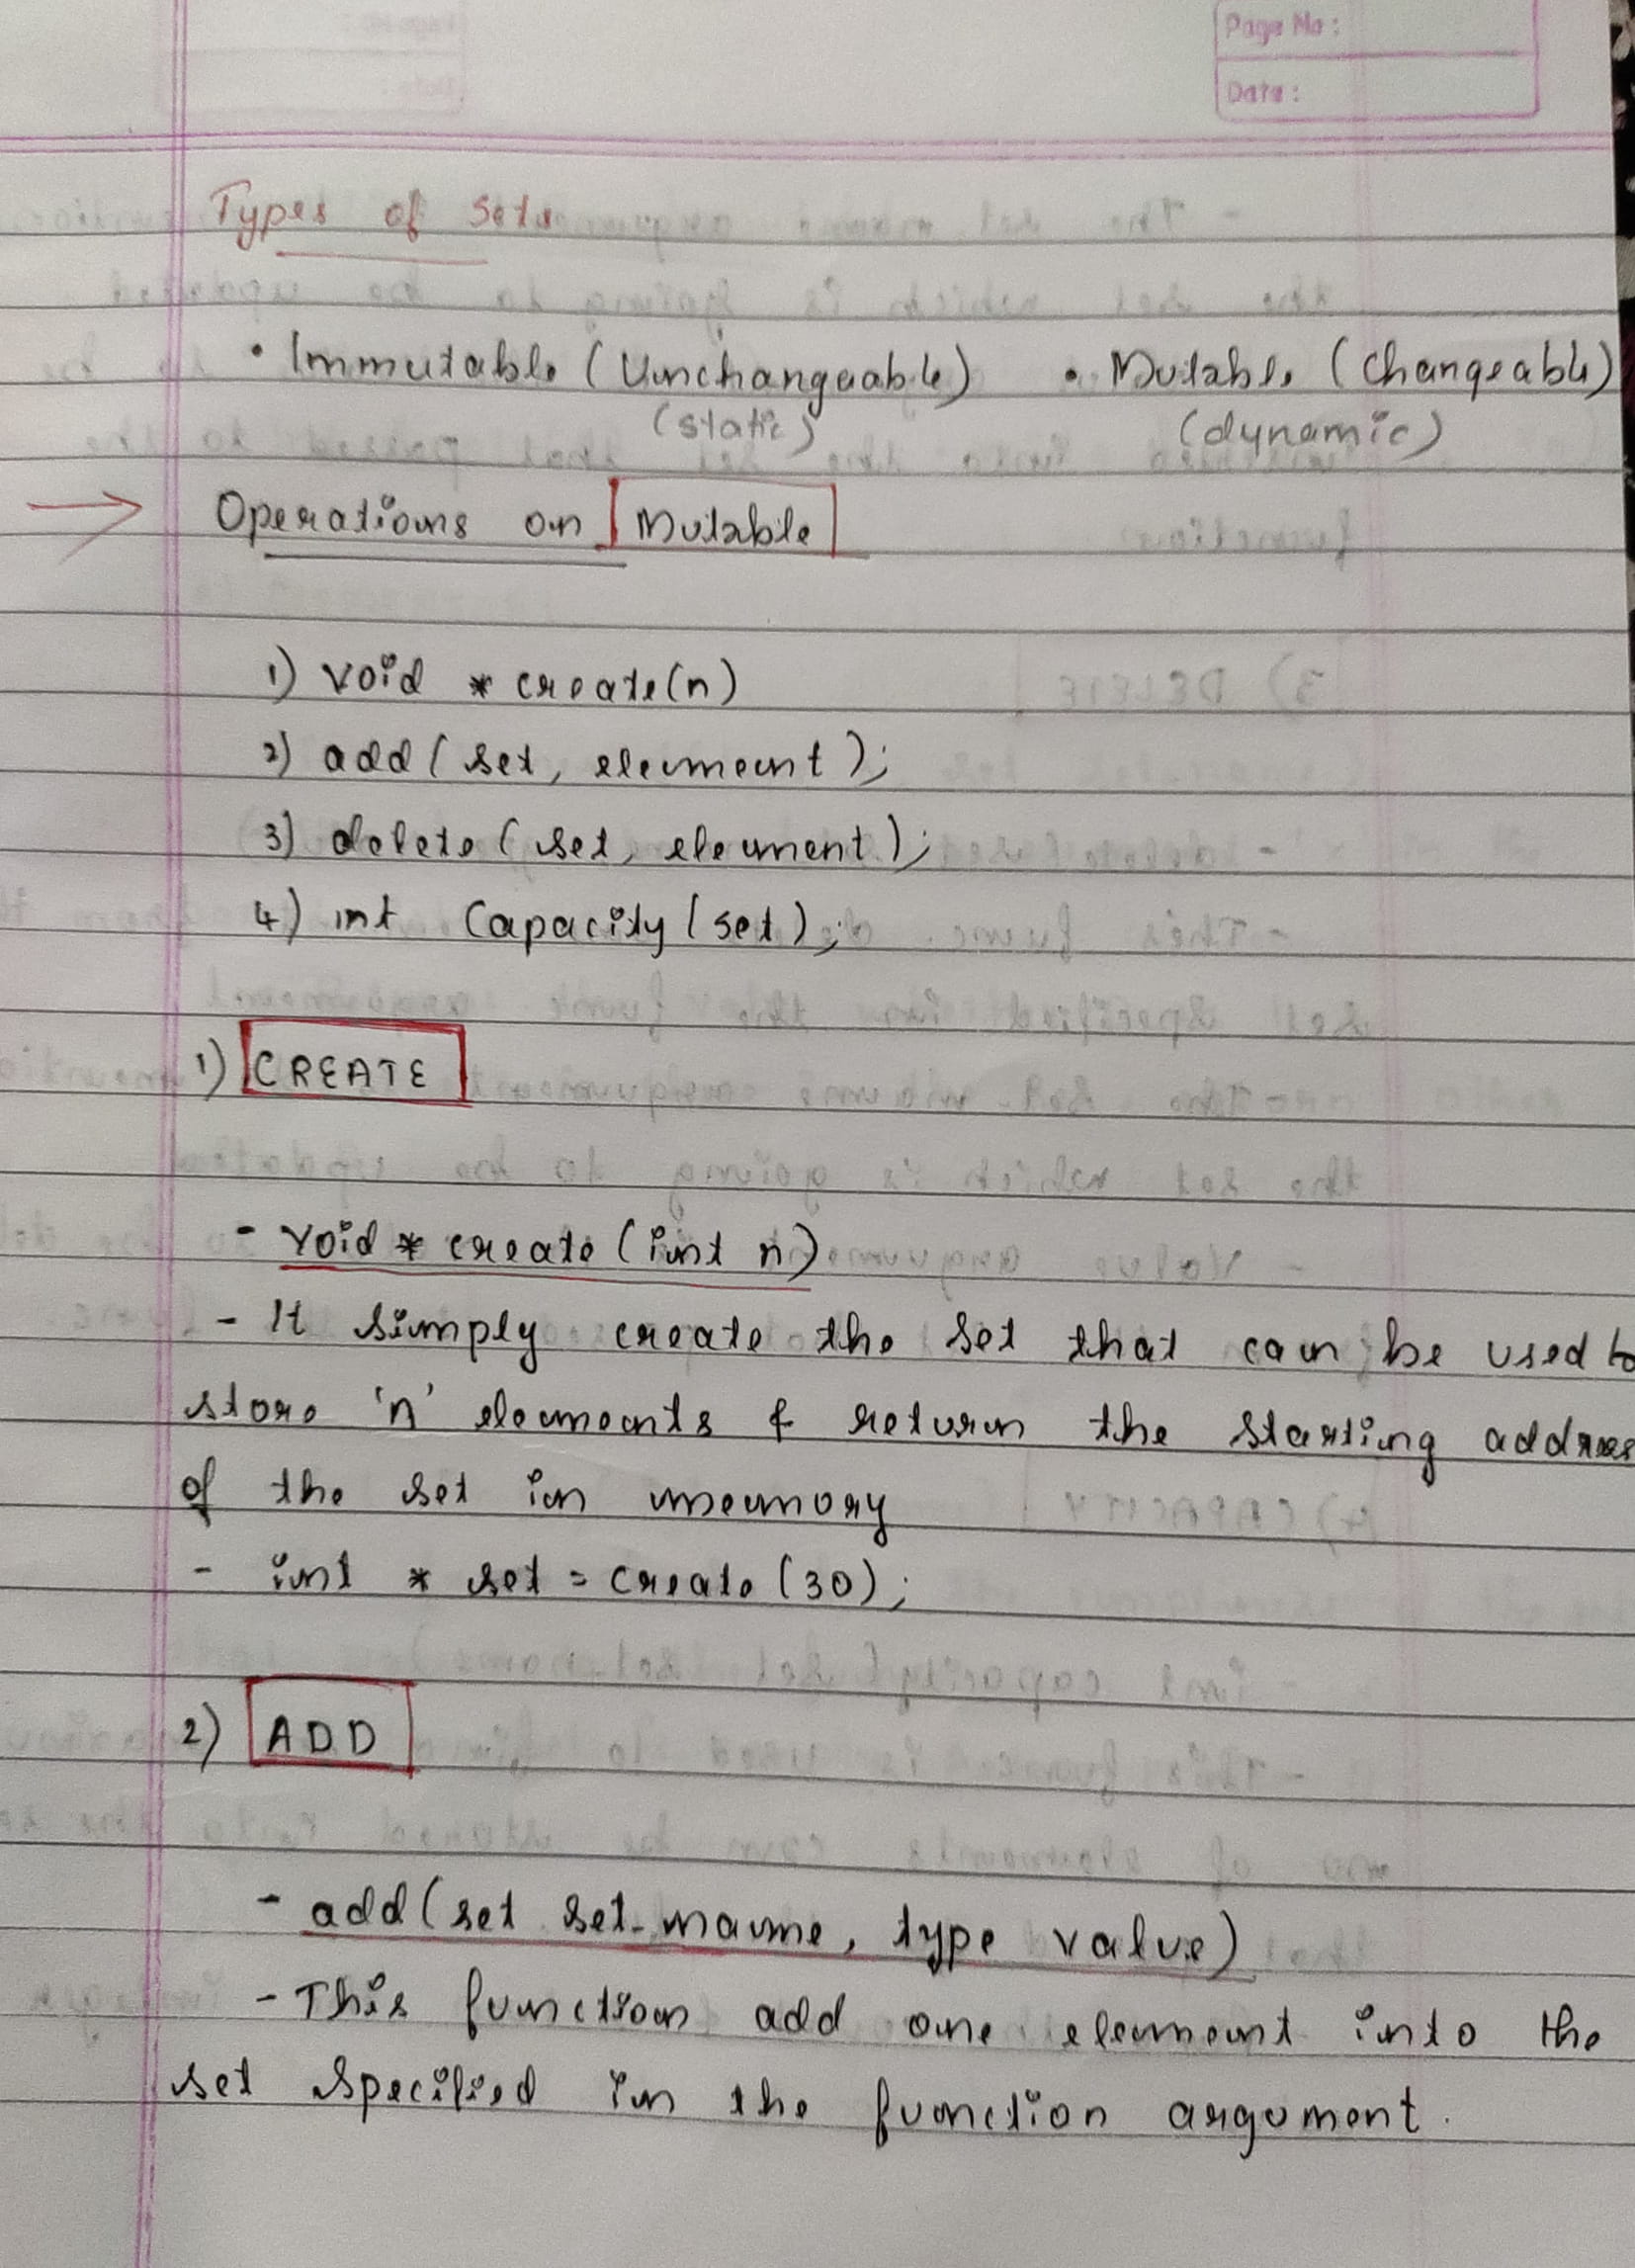 Page No:
Date:
Types of Sets
• Immutable (Unchangeable) • Mutable (changeable)
(static) (dynamic)
→ Operations on Mutable
1) void * create(n)
2) add (set, element);
3) delete (set, element);
4) int Capacity (set);
1) CREATE
- void * create (int n)
- It simply create the set that can be used to
store 'n' elements & return the starting address
of the set in memory
- int * set = create (30);
2) ADD
- add (set set-name, type value)
- This function add one element into the
set specified in the function argument.